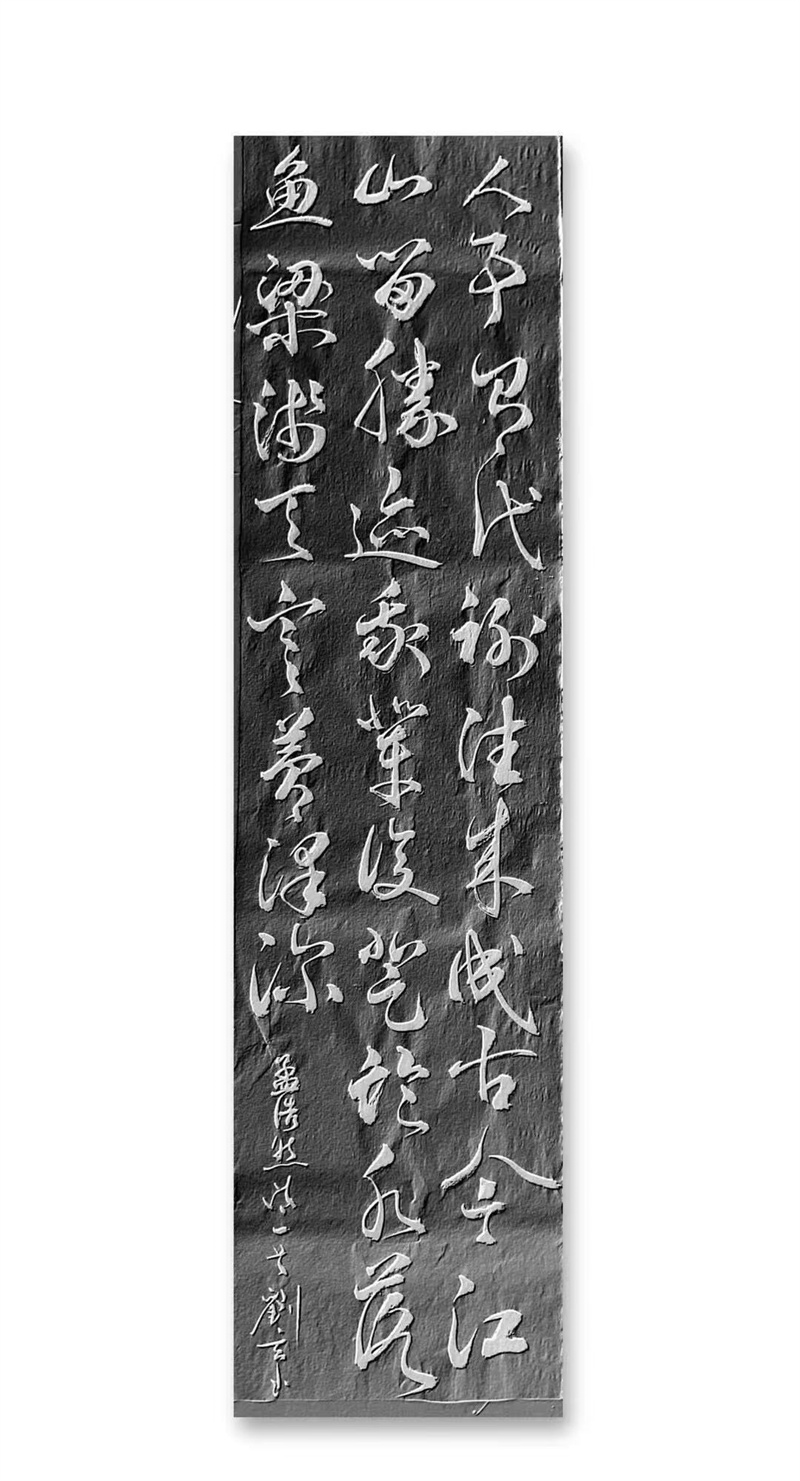 人事有代謝往来成古今江
山留勝迹我輩復登臨水落
鱼梁淺天寒夢澤深 孟浩然詩一首 劉